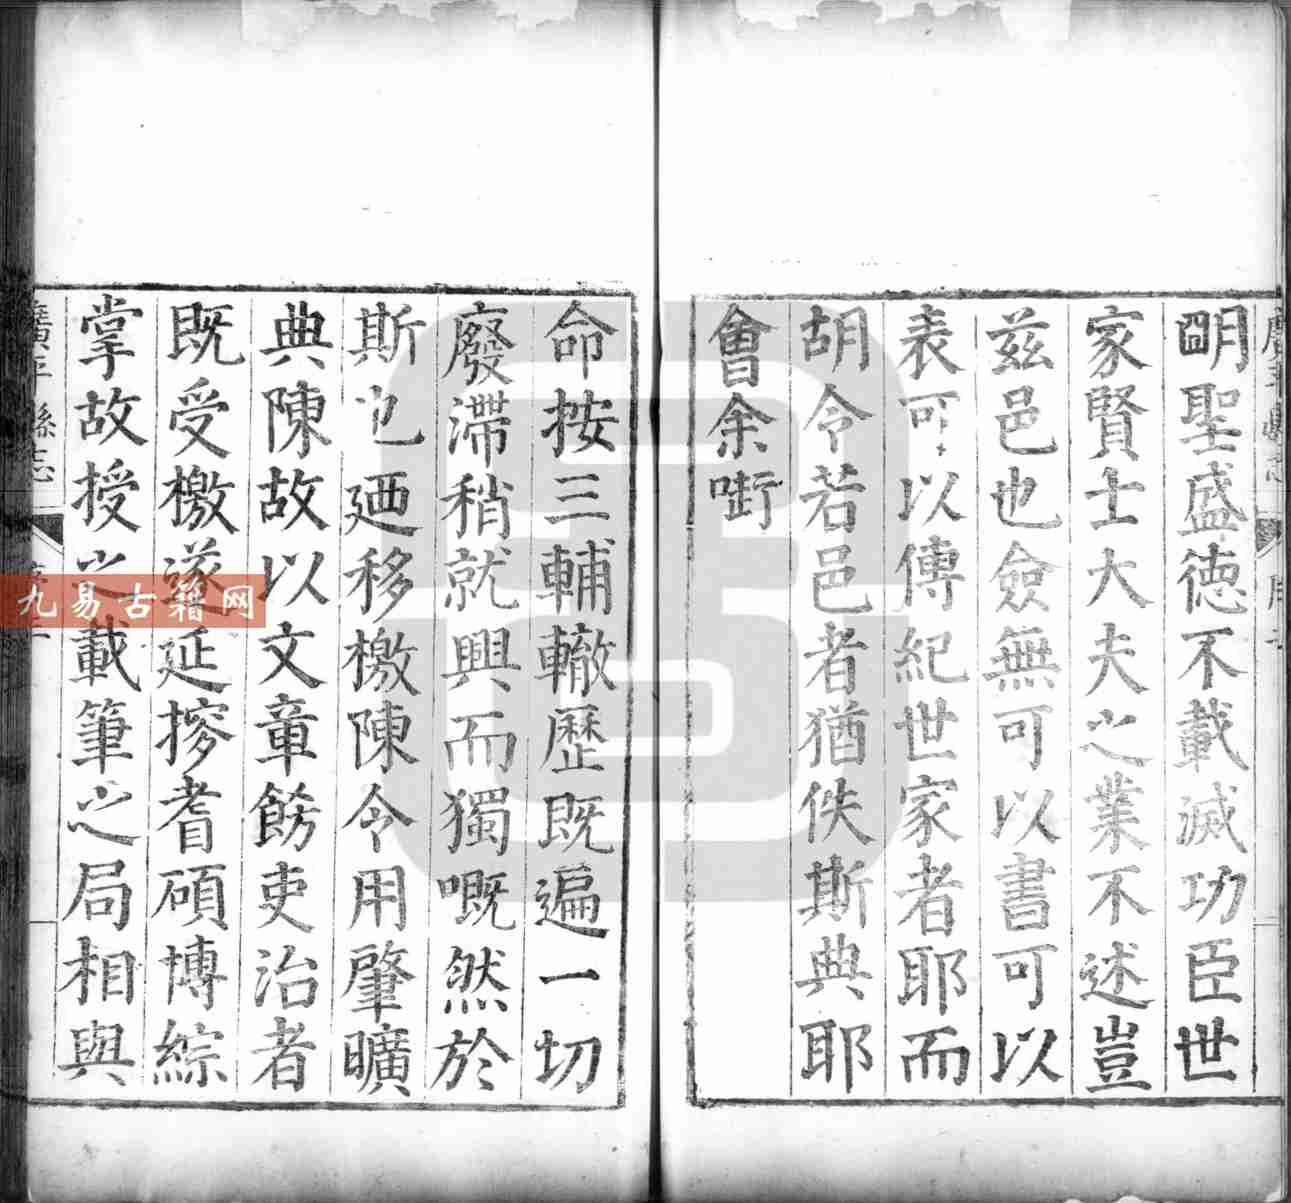 明聖盛德不載滅功臣世
家賢士大夫之業不述豈
兹邑也僉無可以書可以
表可以傳紀世家者耶而
胡令若邑者猶佚斯典耶
會余啣
命按三輔轍歷既遍一切
廢滯稍就興而獨嘅然於
斯也廼移檄陳令用肇曠
典陳故以文章餝吏治者
既受檄遂延搜耆碩博綜
掌故授之載筆之局相與
廣平縣志
九易古籍网